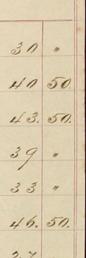 30 "
40 50
43. 50.
39 "
33 "
46. 50.